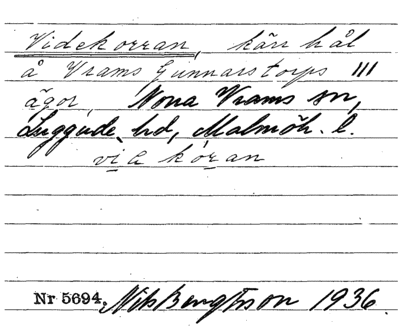 Videkorran, kärr hål
å Vrams Gunnarstorps III
ägor, Norra Vrams sn,
Luggude hd, Malmöh. l.
vi kóran
Nr 5694, Nils Bengtsson 1936.